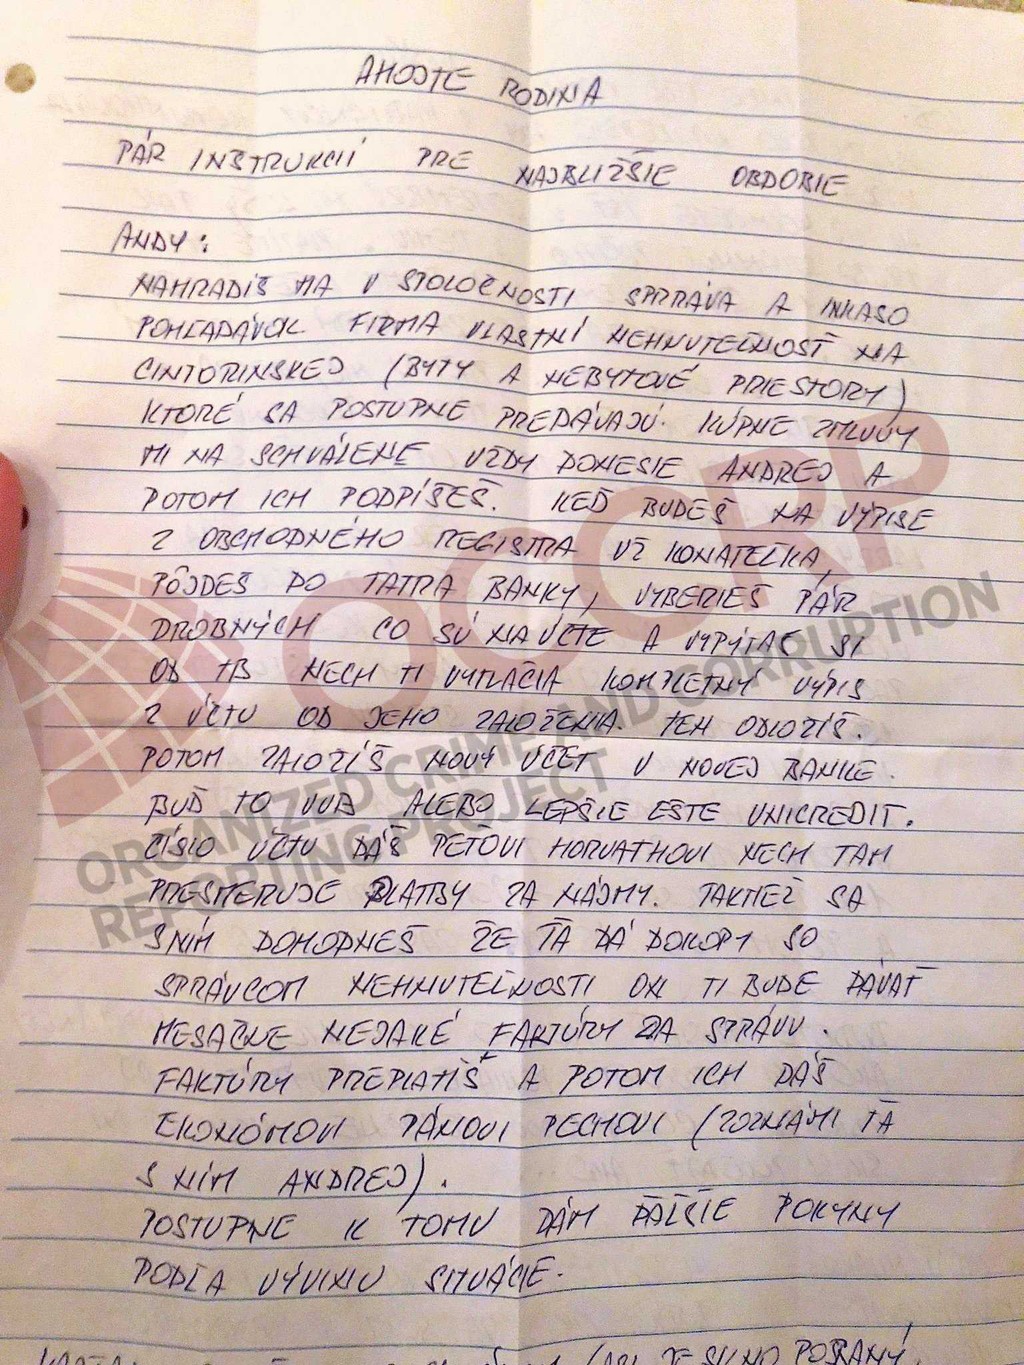 AHOJTE RODINA
PÁR INŠTRUKCIÍ PRE NAJBLIŽŠIE OBDOBIE
ANDY:
NAHRADÍŠ MA V SPOLOČNOSTI SPRÁVA A INKASO
POHĽADÁVOK FIRMA VLASTNÍ NEHNUTEĽNOSŤ NA
CINTORINSKEJ (BYTY A NEBYTOVÉ PRIESTORY)
KTORÉ SA POSTUPNE PREDÁVAJÚ. KÚPNE ZMLUVY
MI NA SCHVÁLENE VŽDY DONESIE ANDREJ A
POTOM ICH PODPÍŠEŠ. KEĎ BUDEŠ NA VÝPISE
Z OBCHODNÉHO REGISTRA UŽ KONATEĽKA,
PÔJDEŠ DO TATRA BANKY, VYBERIEŠ PÁR
DROBNÝCH ČO SÚ NA ÚČTE A VYPÝTAŠ SI
OD TB NECH TI VYTLAČIA KOMPLETNÝ VÝPIS
Z ÚČTU OD JEHO ZALOŽENIA. TEN ODLOŽÍŠ.
POTOM ZALOŽÍŠ NOVÝ ÚČET V NOVEJ BANKE.
BUĎ TO VUB ALEBO LEPŠIE EŠTE UNICREDIT.
ČÍSLO ÚČTU DÁŠ PEŤOVI HORVATHOVI NECH TAM
PRESMERUJE PLATBY ZA NÁJMY. TAKTIEŽ SA
S NÍM DOHODNEŠ ŽE ŤA DÁ DOKOPY SO
SPRÁVCOM NEHNUTEĽNOSTI ON TI BUDE DÁVAŤ
MESAČNE NEJAKÉ FAKTÚRY ZA SPRÁVU.
FAKTÚRY PREPLATÍŠ A POTOM ICH DÁŠ
EKONÓMOVI PÁNOVI PECHOVI (ZOZNÁMI ŤA
S NÍM ANDREJ).
POSTUPNE K TOMU DÁM ĎALŠIE POKYNY
PODĽA VÝVINU SITUÁCIE.
OCCRP
ORGANIZED CRIME AND CORRUPTION
REPORTING PROJECT